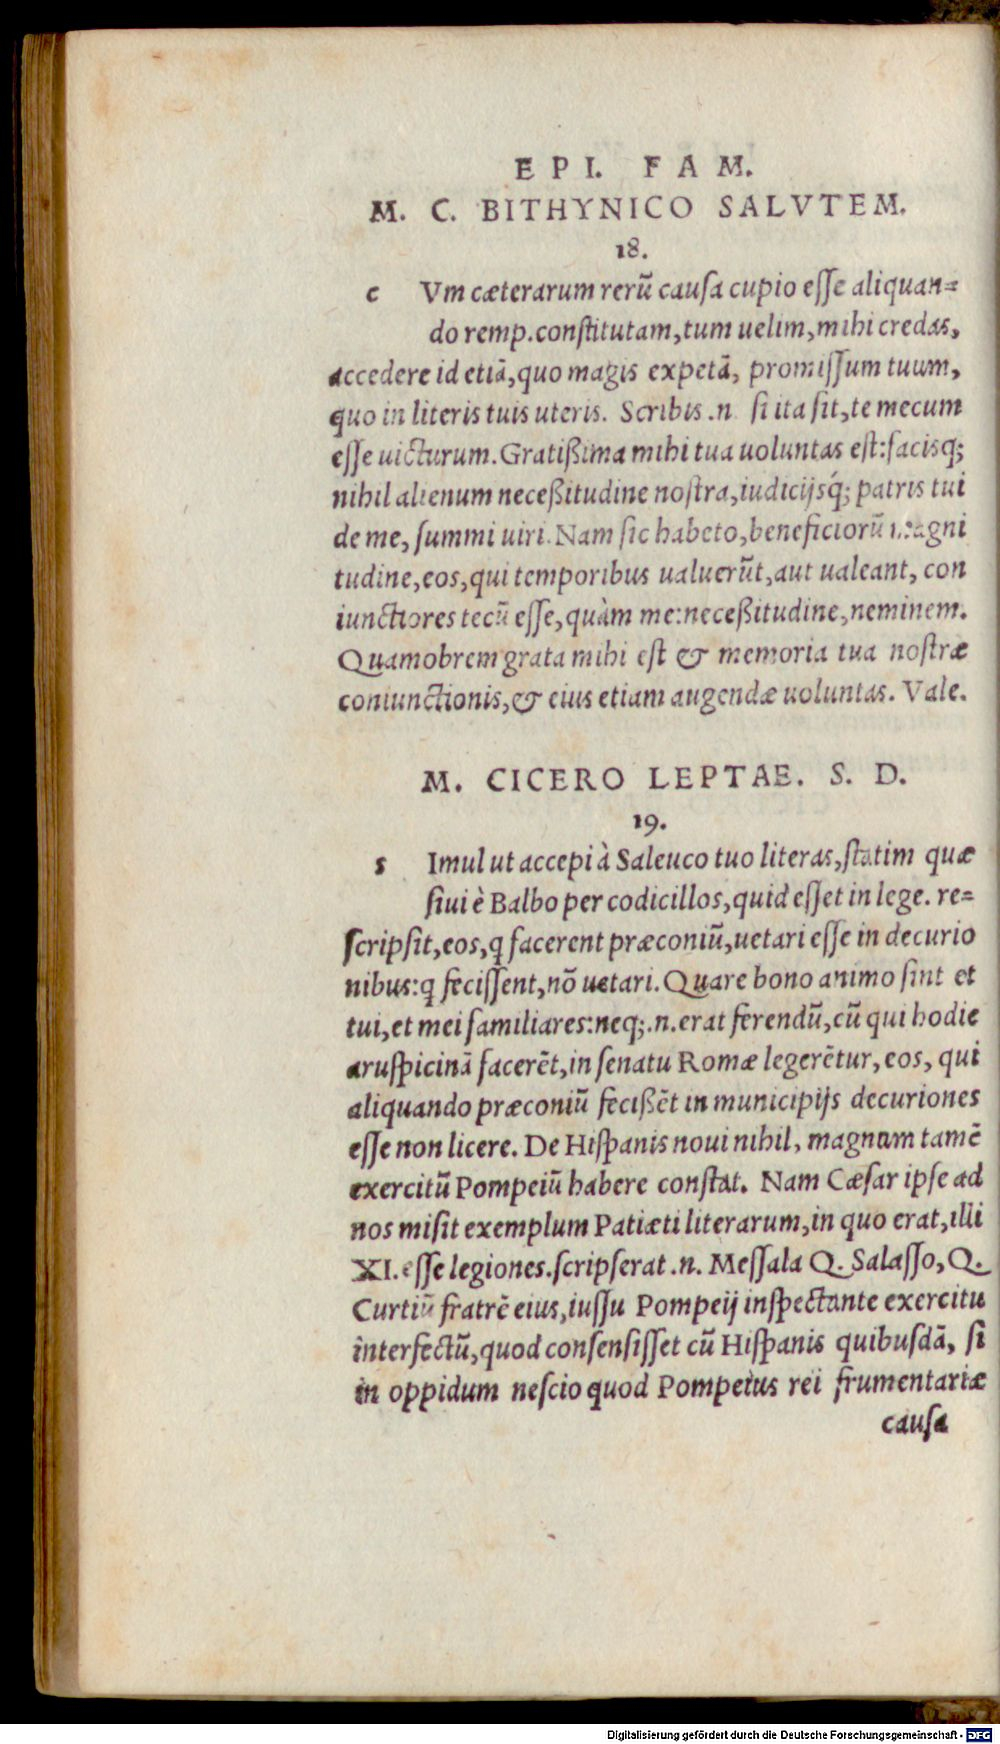 EPI. FAM.
M. C. BITHYNICO SALVTEM.
18.
c Vm cæterarum rerũ causa cupio esse aliquan=
do remp.constitutam,tum uelim,mihi credas,
accedere id etiã,quo magis expetã, promissum tuum,
quo in literis tuis uteris. Scribis .n. si ita sit,te mecum
esse uicturum.Gratißima mihi tua uoluntas est:facisq;
nihil alienum neceßitudine nostra,iudicijsq́; patris tui
de me, summi uiri. Nam sic habeto,beneficiorũ magni
tudine,eos,qui temporibus ualuerũt,aut ualeant, con
iunctiores tecũ esse,quàm me:neceßitudine,neminem.
Quamobrem grata mihi est & memoria tua nostræ
coniunctionis,& eius etiam augendæ uoluntas. Vale.
M. CICERO LEPTAE. S. D.
19.
s Imul ut accepi à Saleuco tuo literas,statim quæ
siui è Balbo per codicillos,quid esset in lege. re=
scripsit,eos,q facerent præconiũ,uetari esse in decurio
nibus:q fecissent,nõ uetari.Quare bono animo sint et
tui,et mei familiares:neq;.n.erat ferendũ,cũ qui hodie
aruspicinã facerẽt,in senatu Romæ legerẽtur,eos, qui
aliquando præconiũ fecißẽt in municipijs decuriones
esse non licere. De Hispanis noui nihil, magnum tamẽ
exercitũ Pompeiũ habere constat. Nam Cæsar ipse ad
nos misit exemplum Patiæti literarum,in quo erat,illi
XI.esse legiones.scripserat .n. Messala Q. Salasso, Q.
Curtiũ fratrẽ eius,iussu Pompeij inspectante exercitu
interfectũ,quod consensisset cũ Hispanis quibusdã, si
in oppidum nescio quod Pompeius rei frumentariæ
causa
Digitalisierung gefördert durch die Deutsche Forschungsgemeinschaft - DFG